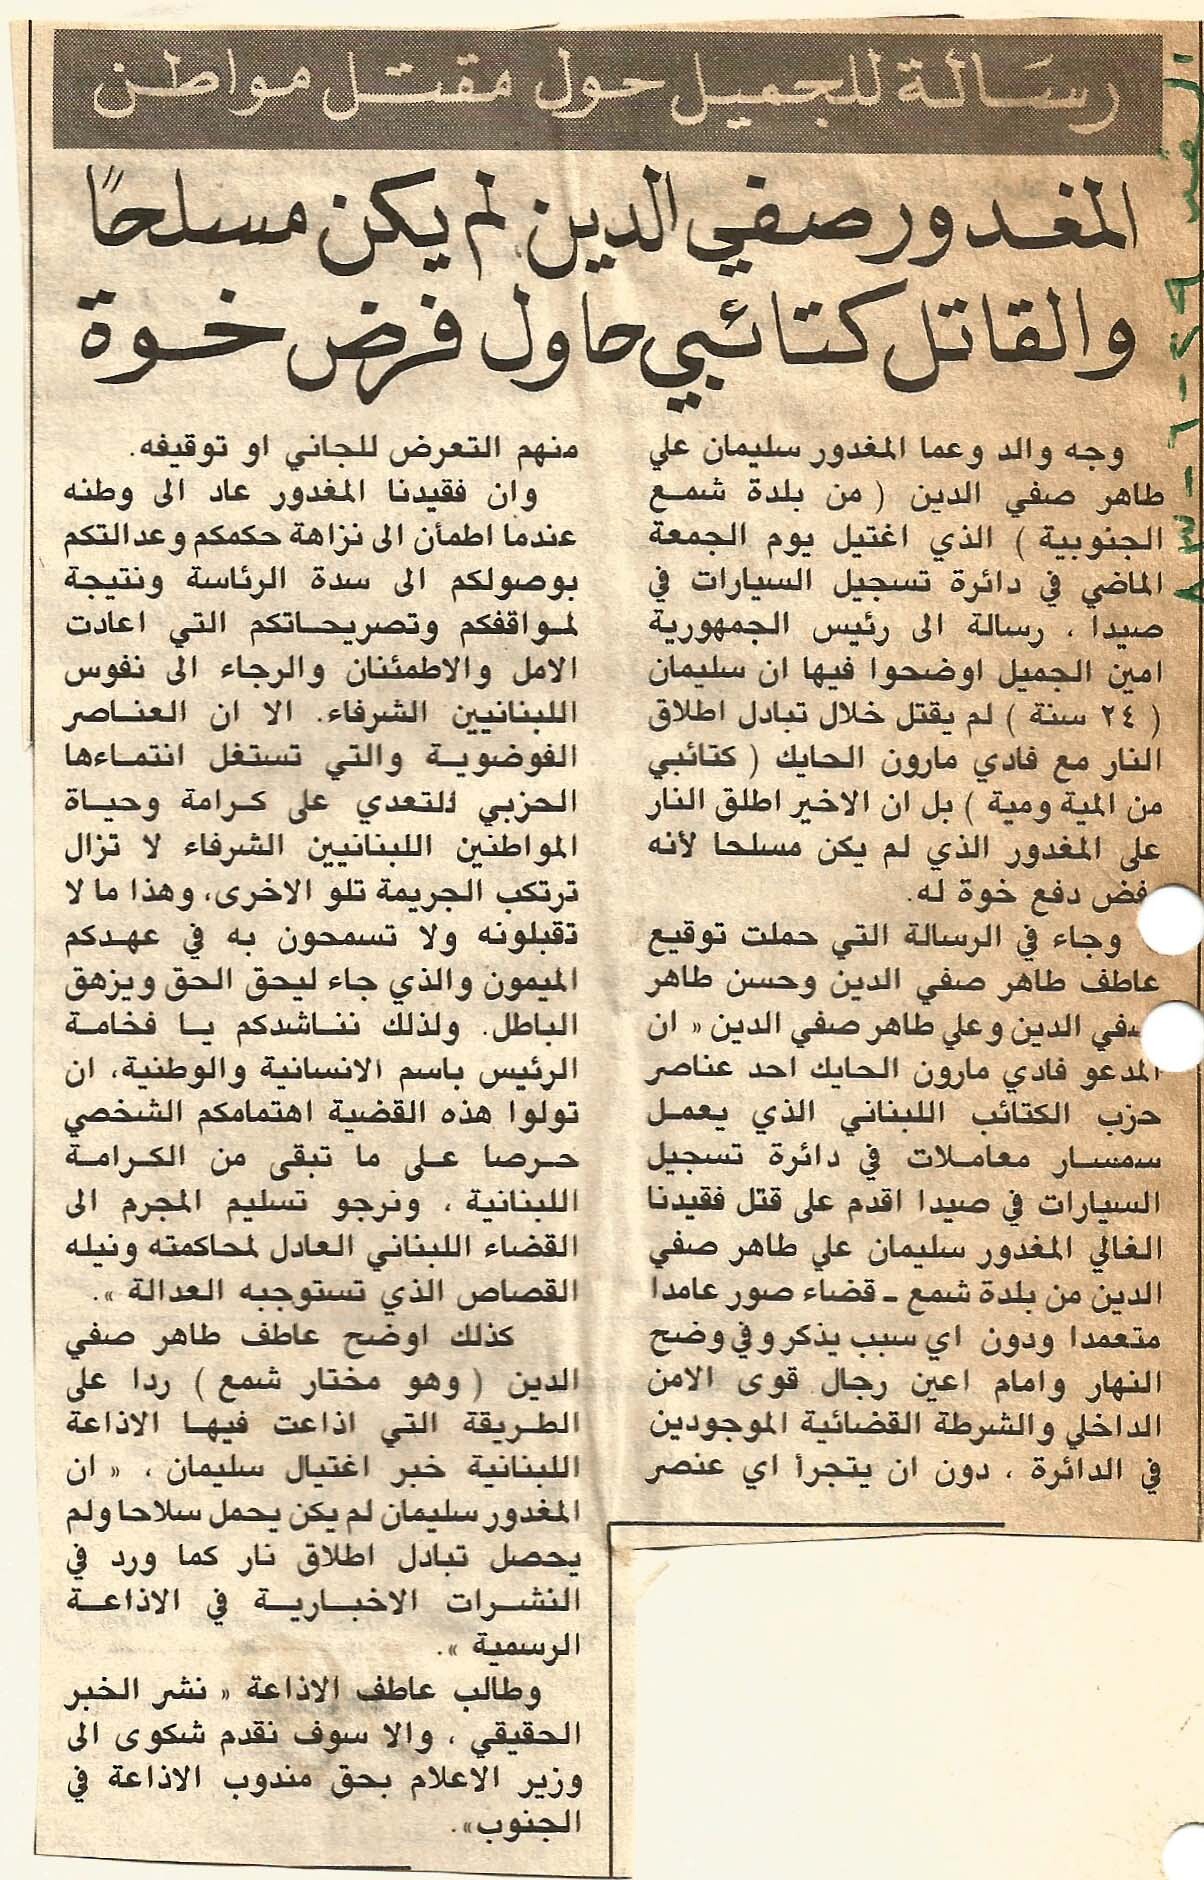 رسالة للجميل حول مقتل مواطن
المغدور صفي الدين لم يكن مسلحاً
والقاتل كتائبي حاول فرض خوة
وجه والد وعما المغدور سليمان علي
طاهر صفي الدين ( من بلدة شمع
الجنوبية ) الذي اغتيل يوم الجمعة
الماضي في دائرة تسجيل السيارات في
صيدا ، رسالة الى رئيس الجمهورية
امين الجميل اوضحوا فيها ان سليمان
( ٢٤ سنة ) لم يقتل خلال تبادل اطلاق
النار مع فادي مارون الحايك ( كتائبي
من المية ومية ) بل ان الاخير اطلق النار
على المغدور الذي لم يكن مسلحا لأنه
فض دفع خوة له.
وجاء في الرسالة التي حملت توقيع
عاطف طاهر صفي الدين وحسن طاهر
صفي الدين وعلي طاهر صفي الدين « ان
المدعو فادي مارون الحايك احد عناصر
حزب الكتائب اللبناني الذي يعمل
سمسار معاملات في دائرة تسجيل
السيارات في صيدا اقدم على قتل فقيدنا
الغالي المغدور سليمان علي طاهر صفي
الدين من بلدة شمع ـ قضاء صور عامدا
متعمدا ودون اي سبب يذكر وفي وضح
النهار وامام اعين رجال قوى الامن
الداخلي والشرطة القضائية الموجودين
في الدائرة ، دون ان يتجرأ اي عنصر
منهم التعرض للجاني او توقيفه.
وان فقيدنا المغدور عاد الى وطنه
عندما اطمأن الى نزاهة حكمكم وعدالتكم
بوصولكم الى سدة الرئاسة ونتيجة
لمواقفكم وتصريحاتكم التي اعادت
الامل والاطمئنان والرجاء الى نفوس
اللبنانيين الشرفاء. الا ان العناصر
الفوضوية والتي تستغل انتماءها
الحزبي للتعدي على كرامة وحياة
المواطنين اللبنانيين الشرفاء لا تزال
ترتكب الجريمة تلو الاخرى، وهذا ما لا
تقبلونه ولا تسمحون به في عهدكم
الميمون والذي جاء ليحق الحق ويزهق
الباطل. ولذلك نناشدكم يا فخامة
الرئيس باسم الانسانية والوطنية، ان
تولوا هذه القضية اهتمامكم الشخصي
حرصا على ما تبقى من الكرامة
اللبنانية ، ونرجو تسليم المجرم الى
القضاء اللبناني العادل لمحاكمته ونيله
القصاص الذي تستوجبه العدالة ».
كذلك اوضح عاطف طاهر صفي
الدين ( وهو مختار شمع ) ردا على
الطريقة التي اذاعت فيها الاذاعة
اللبنانية خبر اغتيال سليمان ، « ان
المغدور سليمان لم يكن يحمل سلاحا ولم
يحصل تبادل اطلاق نار كما ورد في
النشرات الاخبارية في الاذاعة
الرسمية ».
وطالب عاطف الاذاعة « نشر الخبر
الحقيقي ، والا سوف نقدم شكوى الى
وزير الاعلام بحق مندوب الاذاعة في
الجنوب».